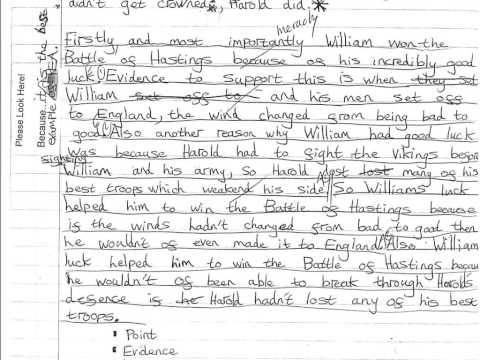 didn't get crowned, Harold did.*
meracly
Firstly and most importantly William won the
Battle of Hastings because of his incredibly good
luck. Evidence to support this is when they set
William set off to and his men set off
to England, the wind changed from being bad to
good. Also another reason why William had good luck
was because Harold had to fight the Vikings before
fighting
William and his army, so Harold lost many of his
best troops which weakend his side. So Williams luck
helped him to win the Battle of Hastings because
if the winds hadn't changed from bad to good then
he wouldnt of even made it to England. Also William
luck helped him to win the Battle of Hastings because
he wouldn't of been able to break through Harolds
defence if he Harold hadn't lost any of his best
troops.
• Point
• Evidence
Please Look Here!
Because it is the best
example of PEA.